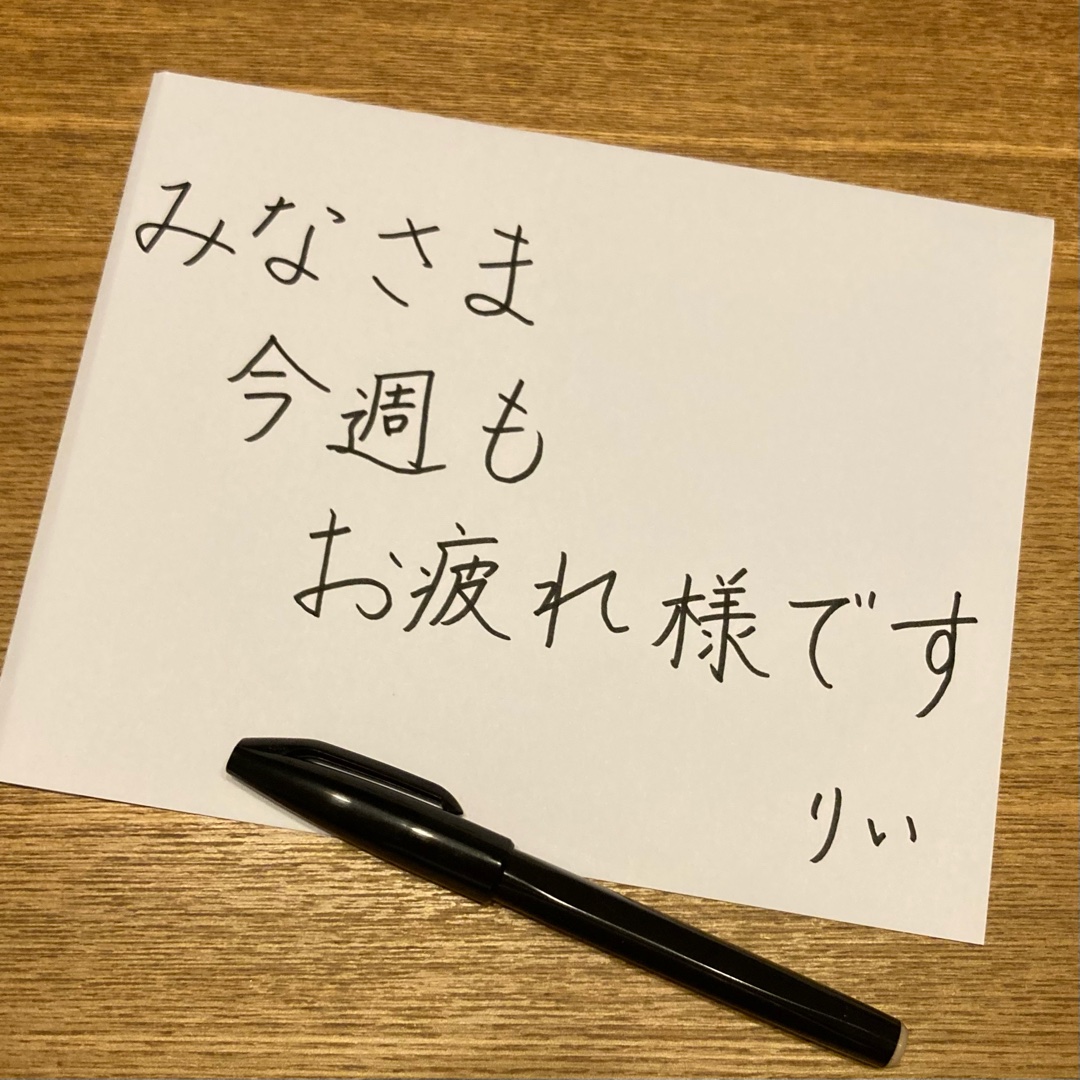 みなさま
今週も
お疲れ様です
りぃ